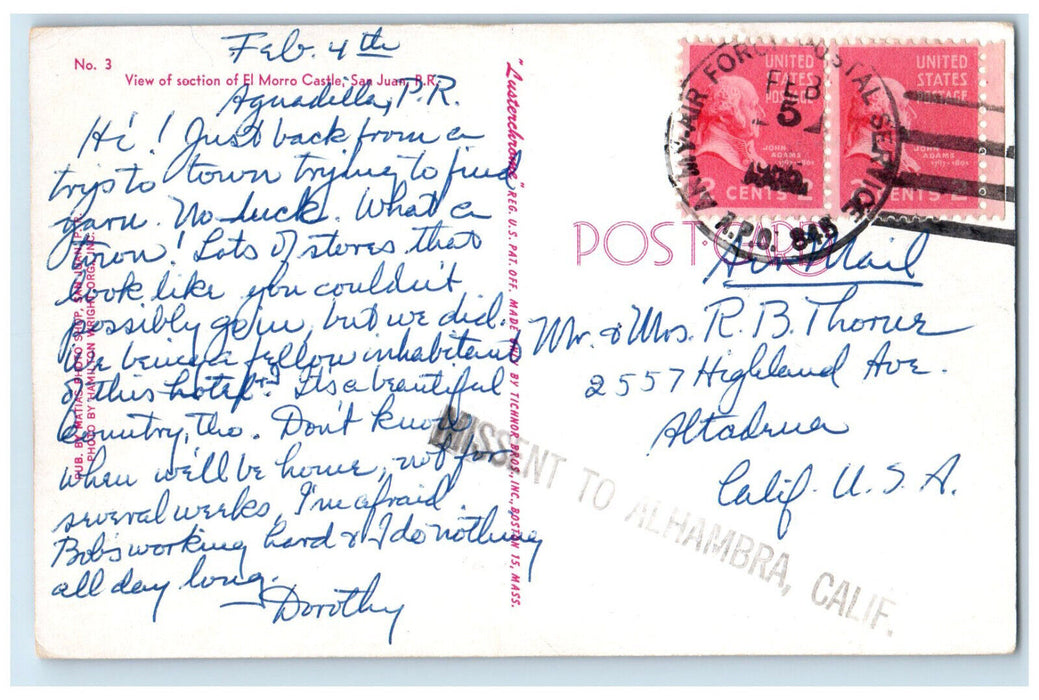 Feb. 4th
No. 3
View of soction of El Morro Castle, San Juan, P.R.
Aguadilla, P.R.
Hi! Just back from a
trip to town trying to find
yarn. No luck. What a
town! Lots of stores that
look like you couldn't
possibly go in, but we did.
being a fellow inhabitant
of this hotel. It's a beautiful
country, tho. Don't know
when we'll be home, not for
several weeks, I'm afraid.
Bob's working hard & I do nothing
all day long.
—Dorothy
PUB. BY MATIAS PHOTO SHOP, SAN JUAN, P.R.
PHOTO BY HAMILTON WRIGHT, ORG., INC.
"Lusterchrome" REG. U.S. PAT. OFF. MADE ONLY BY TICHNOR BROS., INC., BOSTON 15, MASS.
UNITED STATES POSTAGE
JOHN ADAMS
1797-1801
2 CENTS 2
UNITED STATES POSTAGE
JOHN ADAMS
1797-1801
2 CENTS 2
ARMY-AIR FORCE POSTAL SERVICE
FEB
5
A.P.O. 845
POST CARD
Air Mail
Mr. & Mrs. R. B. Thorne
2557 Highland Ave.
Altadena
Calif. U.S.A.
MISSENT TO ALHAMBRA, CALIF.